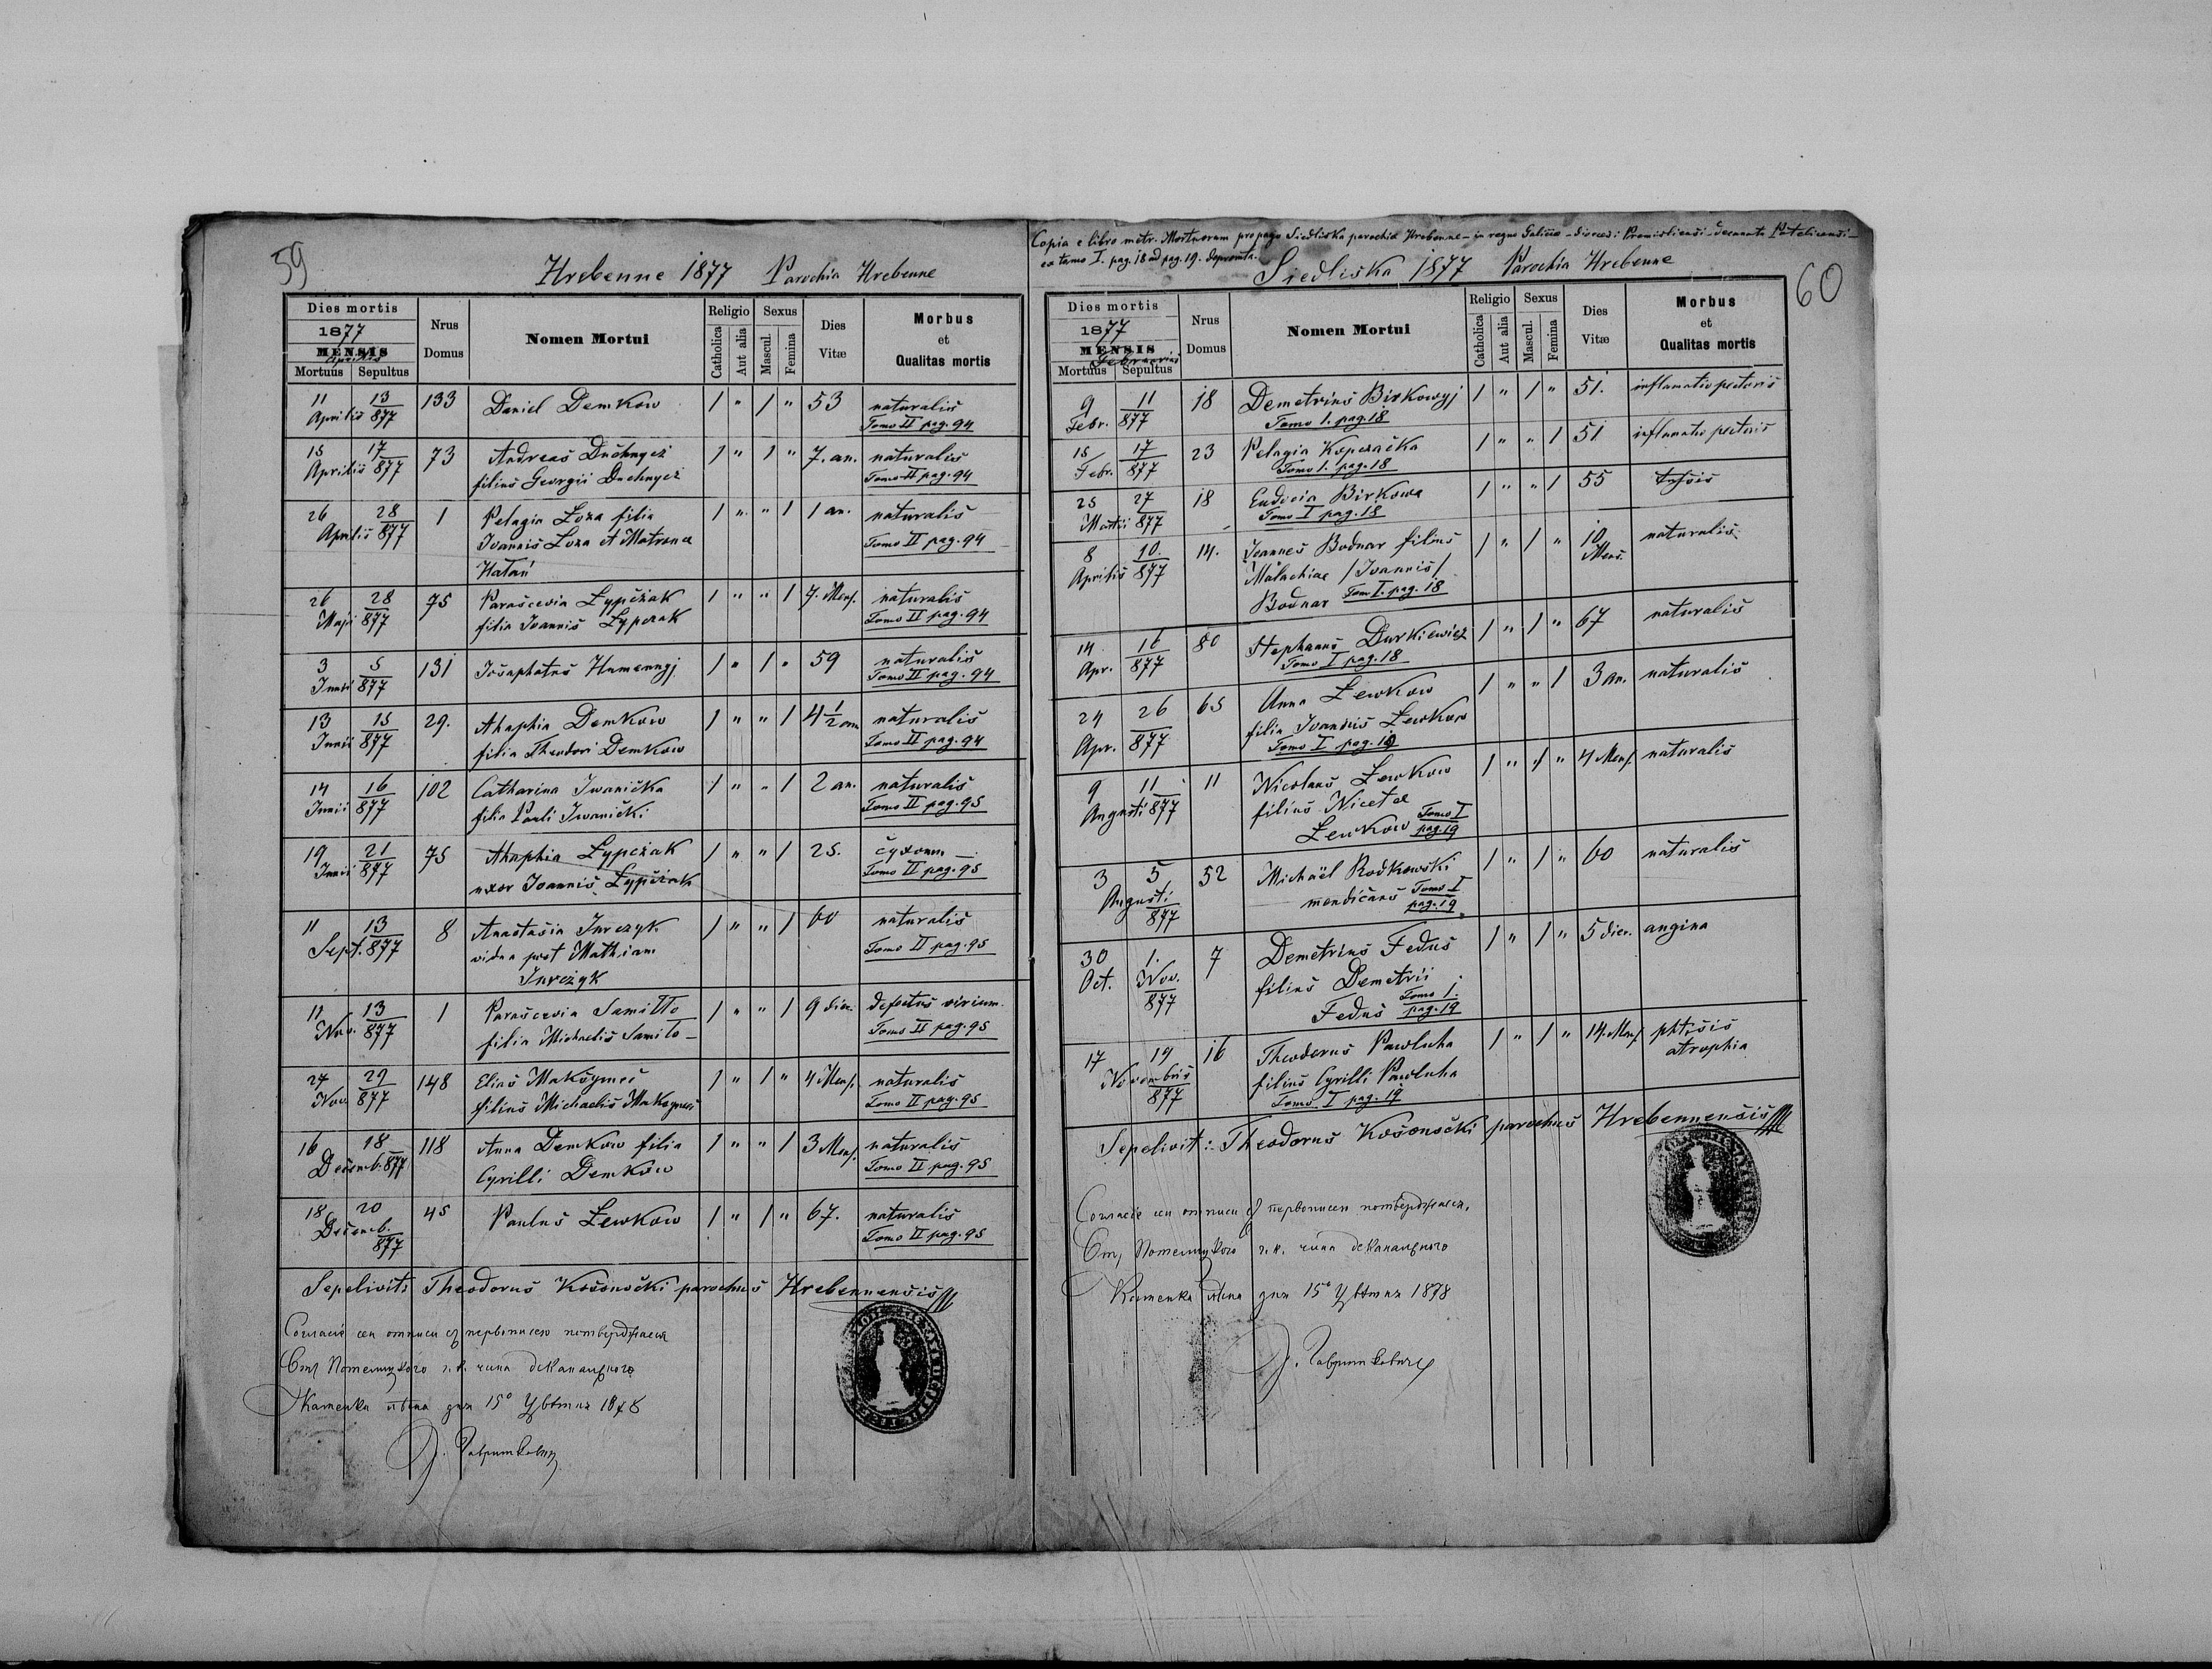 59
Hrebenne 1877 Parochia Hrebenne
Dies mortis
1877
MENSIS
Aprilis
Mortuus Sepultus
Nrus Domus
Nomen Mortui
Religio
Catholica Aut alia
Sexus
Mascul. Femina
Dies Vitæ
Morbus et Qualitas mortis
11 13 133 Daniel Demkow 1 " 1 " 53 naturalis
Aprilis 877 Tomo II pag. 94
15 17 73 Andreas Duchnycz 1 " 1 " 7. an. naturalis
Aprilis 877 filius Georgii Duchnycz Tomo II pag. 94
26 28 1 Pelagia Loza filia 1 " " 1 1 an. naturalis
Aprilis 877 Joannis Loza et Matrona Tomo II pag. 94
Hatań
26 28 75 Parascevia Lypczak 1 " " 1 7. Mens. naturalis
Maji 877 filia Joannis Lypczak Tomo II pag. 94
3 5 131 Josaphatus Humennyj 1 " 1 " 59 naturalis
Junii 877 Tomo II pag. 94
13 15 29. Ahaphia Demkow 1 " " 1 4 1/2 an naturalis
Junii 877 filia Theodori Demkow Tomo II pag. 94
14 16 102 Catharina Iwanicka 1 " " 1 2 an. naturalis
Junii 877 filia Pauli Iwanicki Tomo II pag. 95
19 21 75 Ahaphia Lypczak 1 " " 1 25.
Junii 877 uxor Joannis Lypczak Tomo II pag. 95
11 13 8 Anastasia Jurczyk 1 " " 1 60 naturalis
Sept. 877 vidua post Mathiam Tomo II pag. 95
Jurczyk
11 13 1 Parascevia Samiłło 1 " " 1 9 dier. defectus virium
Nov. 877 filia Michaelis Samiło Tomo II pag. 95
27 29 148 Elias Maksymeć 1 " 1 " 4 Mens. naturalis
Nov. 877 filius Michaelis Tomo II pag. 95
16 18 118 Anna Demkow filia 1 " " 1 3 Mens. naturalis
Decemb. 877 Cyrilli Demkow Tomo II pag. 95
18 20 45 Paulus Lewkow 1 " 1 " 67. naturalis
Decemb. 877 Tomo II pag. 95
Sepelivit: Theodorus Kosonocki parochus Hrebennensis
дня 15° 1878
Copia e libro metr. Mortuorum pro pago Siedliska parochia Hrebenne in regno Galiciæ
ex tomo I. pag. 18 ad pag. 19. deprompta.
Siedliska 1877 Parochia Hrebenne
60
Dies mortis
1877
MENSIS
Februarius
Mortuus Sepultus
Nrus Domus
Nomen Mortui
Religio
Catholica Aut alia
Sexus
Mascul. Femina
Dies Vitæ
Morbus et Qualitas mortis
9 11 18 Demetrius Birkowyj 1 " 1 " 51. inflamatio pectoris
Febr. 877 Tomo I. pag. 18
15 17 23 Pelagia Koperačka 1 " " 1 51 inflamatio pectoris
Febr. 877 Tomo I. pag. 18
25 27 18 Eudocia Birkowa 1 " " 1 55
Martii 877 Tomo I pag. 18
8 10. 14. Joannes Bodnar filius 1 " 1 " 10 naturalis
Aprilis 877 Malachiae /Joannis/ Mens.
Bodnar Tom I. pag. 18
14 16 80 Stephanus Durkiewicz 1 " 1 " 67 naturalis
Apr. 877 Tomo I pag. 18
24 26 65 Anna Lewkow 1 " " 1 3 an. naturalis
Apr. 877 filia Joannis Lewkow
Tomo I pag. 19
9 11 11 Nicolaus Lewkow 1 " 1 " 4 Mens. naturalis
Augusti 877 filius Nicetæ
Lewkow Tomo I pag. 19
3 5 52 Michaël Rodkowski 1 " 1 " 60 naturalis
Augusti 877 mendicans Tomo I pag. 19
30 1. 7 Demetrius Fedus 1 " 1 " 5 dier. angina
Oct. Nov. 877 filius Demetrii
Fedus Tomo I. pag. 19
17 19 16 Theodorus Pawluha 1 " 1 " 14. Mens. phtisis
Novembris 877 filius Cyrilli Pawluha atrophia
Tomo I pag. 19
Sepelivit: Theodorus Kosonocki parochus Hrebennensis
дня 15° 1878